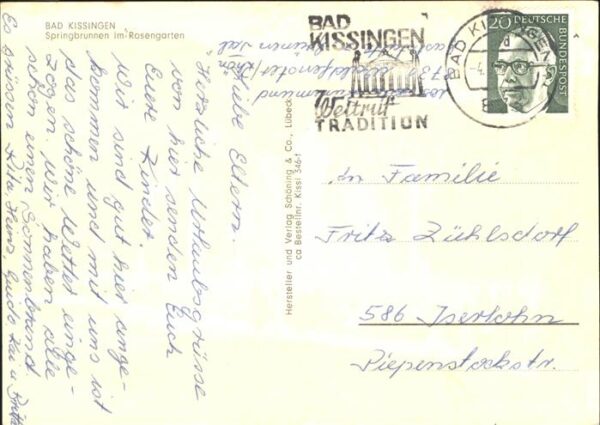 BAD KISSINGEN
Springbrunnen im Rosengarten
Liebe Eltern.
Herzliche Urlaubsgrüsse
von hier senden Euch
Eure Kinder
Wir sind gut hier ange-
kommen und mit uns ist
das schöne Wetter einge-
zogen. Wir haben alle
schon einen Sonnenbrand
Es grüssen Rita Heinz, Guido Kai u
Hersteller und Verlag Schöning & Co., Lübeck
ca Bestellnr. Kissi 346-1
BAD
KISSINGEN
Weltruf
TRADITION
BAD KISSINGEN
20 DEUTSCHE
BUNDESPOST
An Familie
Fritz Zühlsdorf
586 Iserlohn
Piepenstockstr.